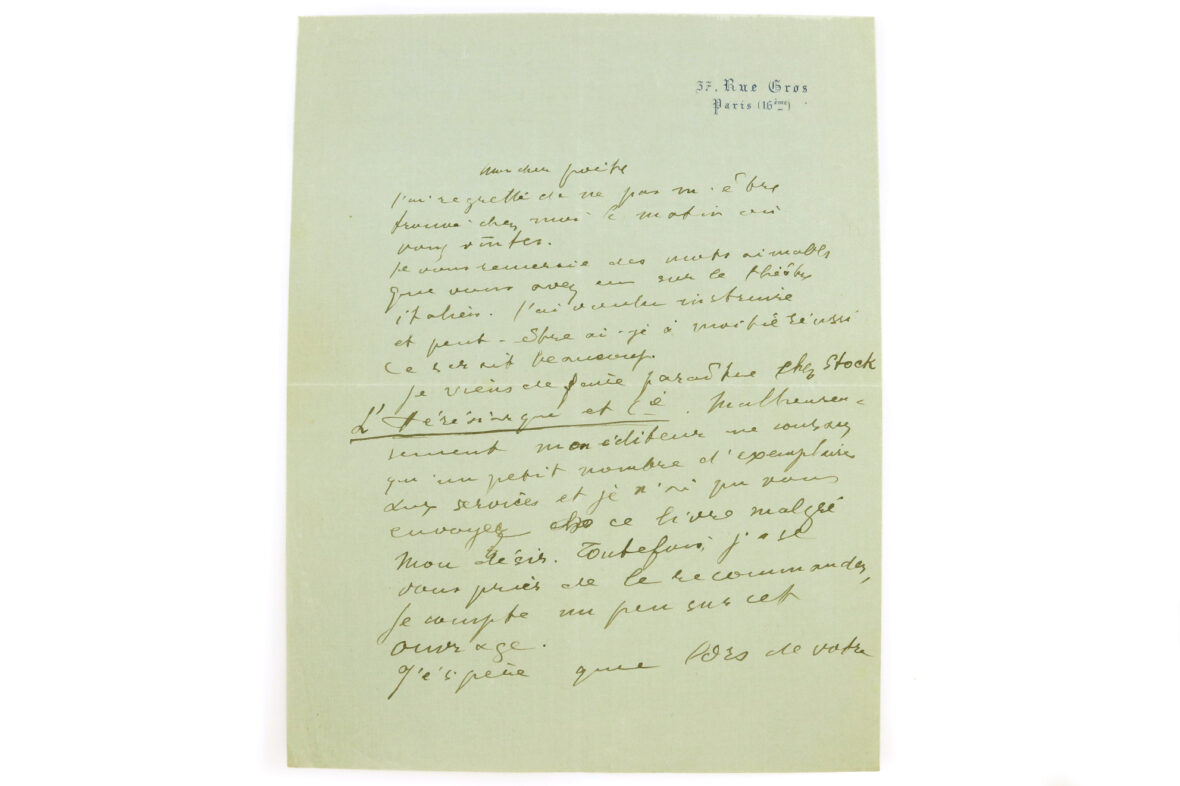 37, Rue Gros
Paris (16ème)
Mon cher poète
J'ai regretté de ne pas m'être
trouvé chez moi le matin où
vous vîntes.
Je vous remercie des mots aimables
que vous avez eu sur le théâtre
italien. J'ai voulu instruire
et peut-être ai-je à moitié réussi
Ce serait beaucoup.
Je viens de faire paraître chez Stock
L'Hérésiarque et Cie. Malheureu-
sement mon éditeur ne consacre
qu'un petit nombre d'exemplaires
aux services et je n'ai pu vous
envoyer ce livre malgré
mon désir. Toutefois, j'ose
vous prier de le recommander,
je compte un peu sur cet
ouvrage.
J'espère que lors de votre